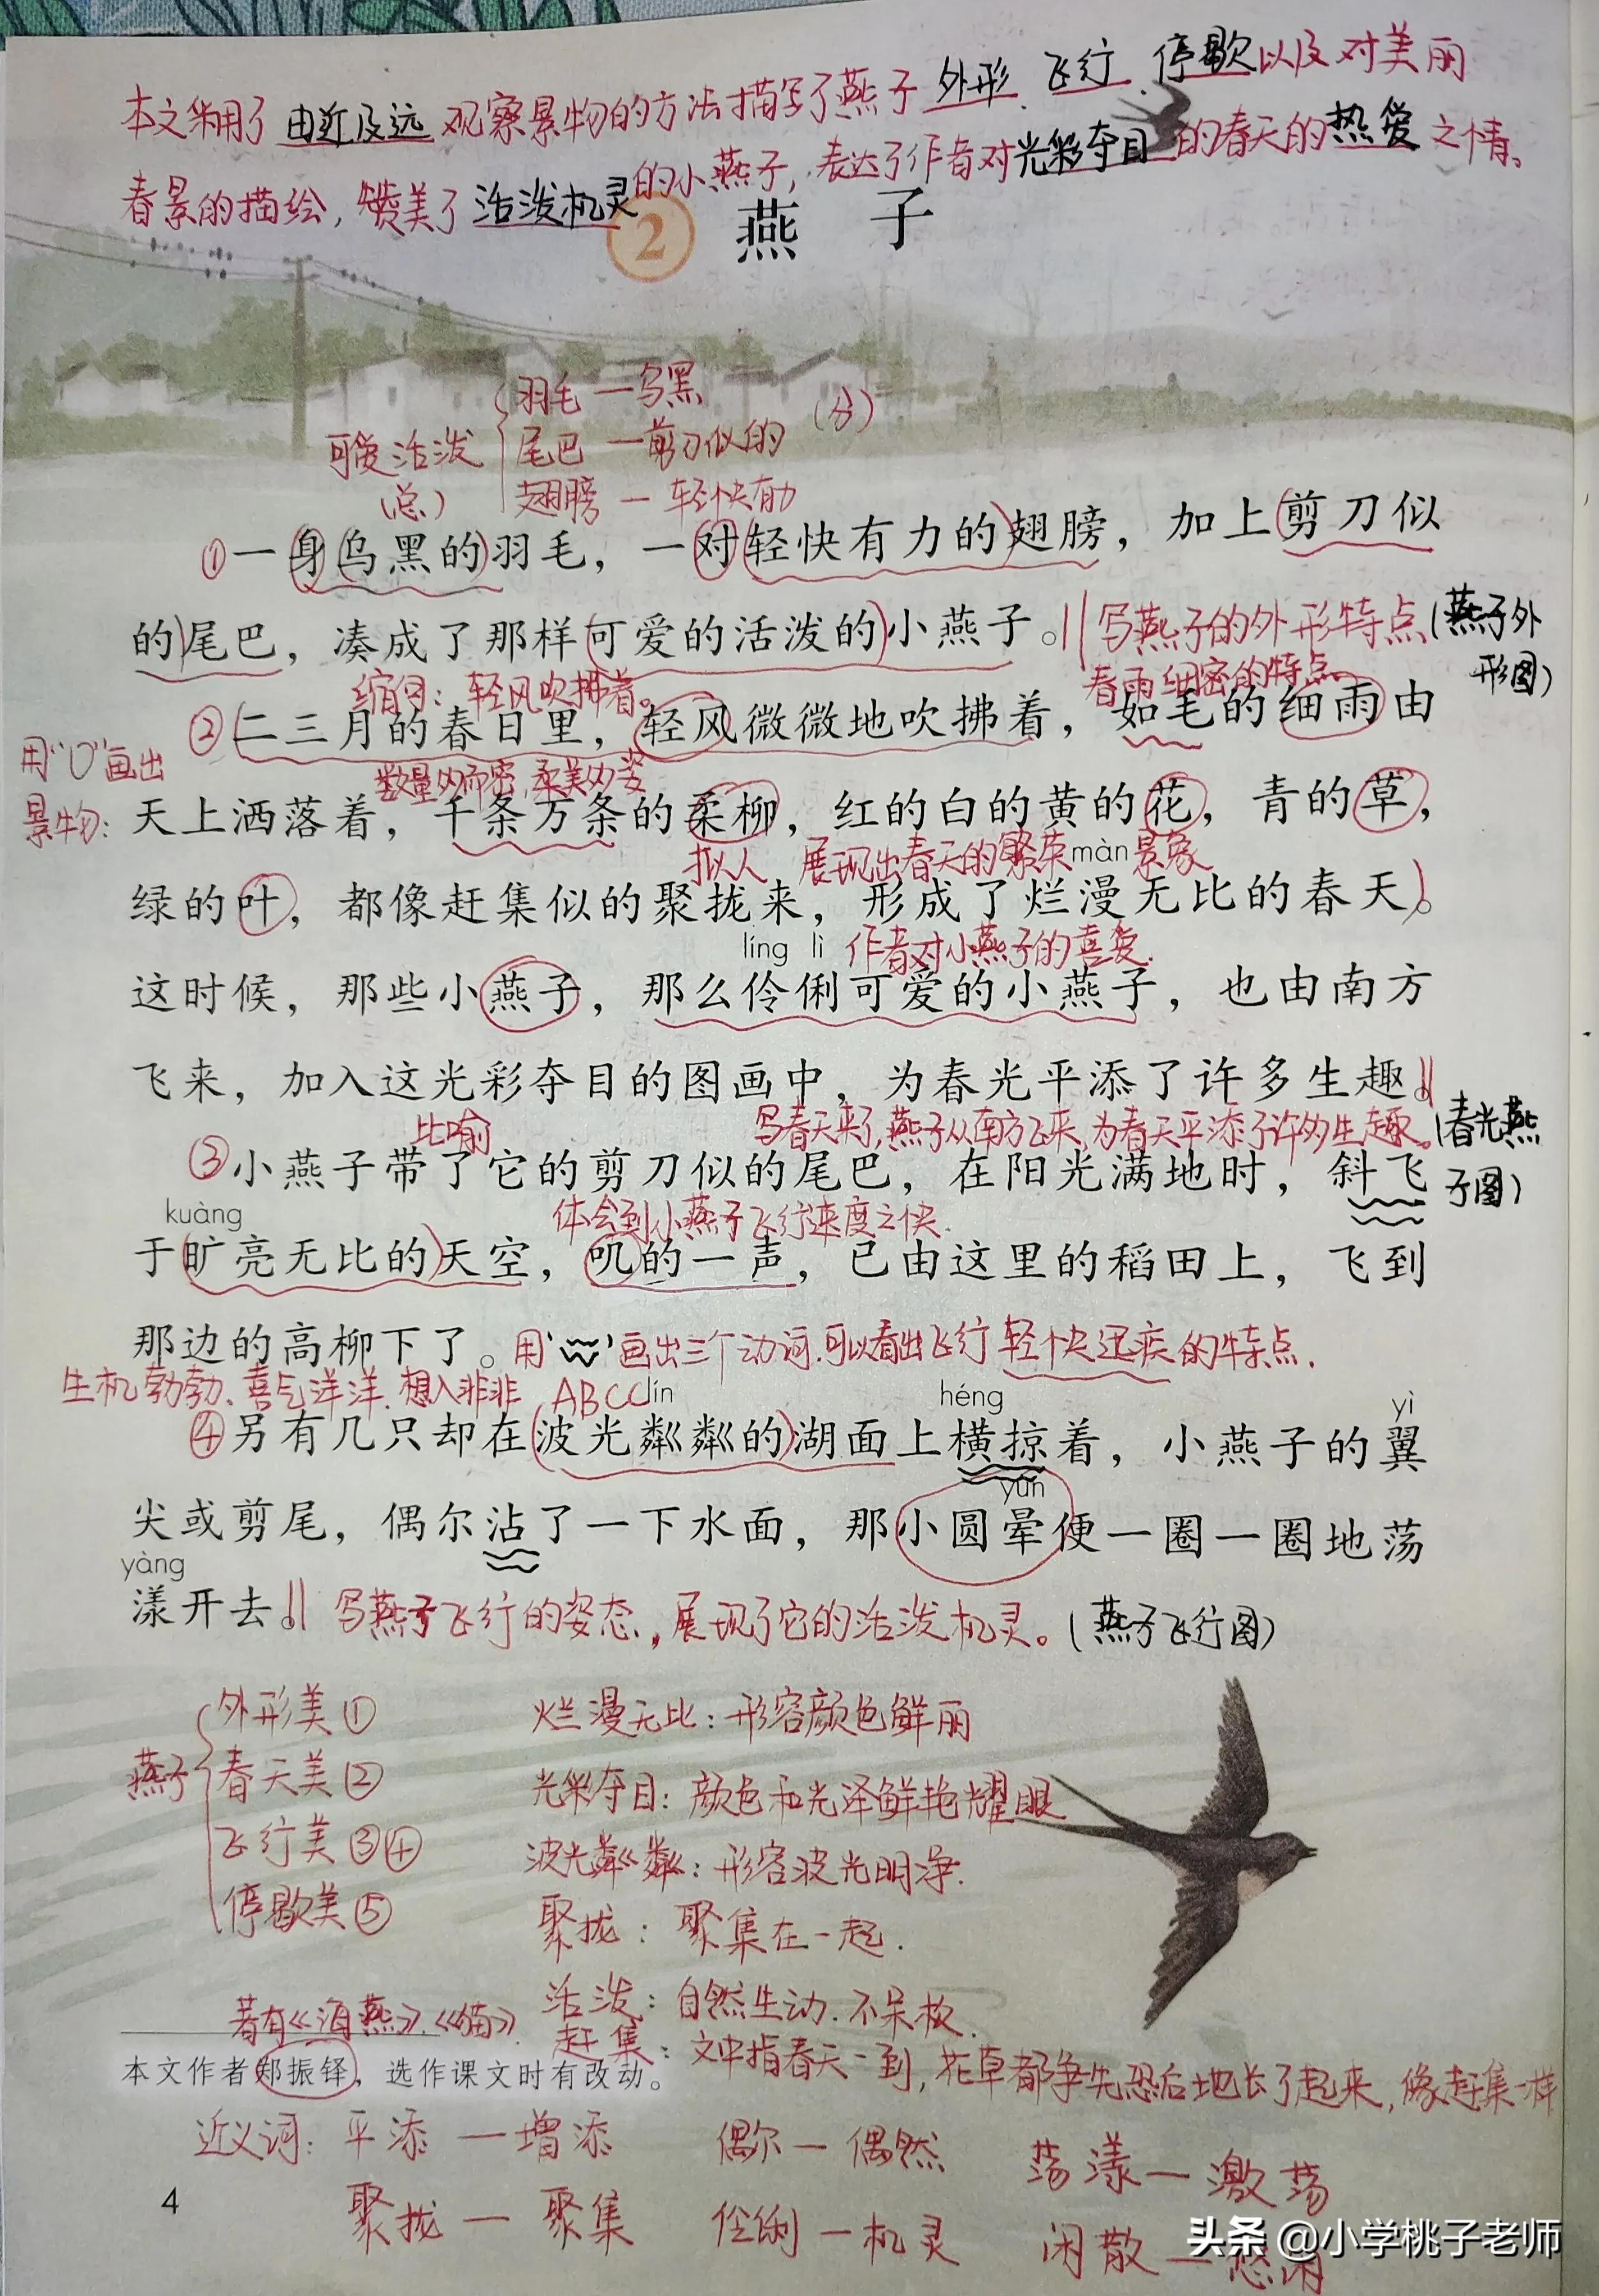 本文采用了 由近及远 观察景物的方法描写了燕子 外形、飞行、停歇以及对美丽
春景的描绘，赞美了 活泼机灵的小燕子，表达了作者对光彩夺目的春天的热爱之情。
2 燕 子
可爱活泼
（总）
羽毛一乌黑
尾巴一剪刀似的
翅膀一轻快有力
（分）
①一身乌黑的羽毛，一对轻快有力的翅膀，加上剪刀似
的尾巴，凑成了那样可爱的活泼的小燕子。‖写燕子的外形特点（燕子外
形图）
缩句：轻风吹拂着。
春雨细密的特点。
②二三月的春日里，轻风微微地吹拂着，如毛的细雨由
用“○”画出
景物：
数量多而密，柔美多姿
天上洒落着，千条万条的柔柳，红的白的黄的花，青的草，
拟人 展现出春天的繁荣景象
màn
绿的叶，都像赶集似的聚拢来，形成了烂漫无比的春天。
líng lì 作者对小燕子的喜爱.
这时候，那些小燕子，那么伶俐可爱的小燕子，也由南方
飞来，加入这光彩夺目的图画中，为春光平添了许多生趣。
比喻 写春天来了,燕子从南方飞来,为春天平添了许多生趣。（春光燕
子图）
③小燕子带了它的剪刀似的尾巴，在阳光满地时，斜飞
kuàng 体会到小燕子飞行速度之快.
于旷亮无比的天空，叽的一声，已由这里的稻田上，飞到
那边的高柳下了。用‘﹏’画出三个动词.可以看出飞行轻快迅疾的特点.
生机勃勃、喜气洋洋.想入非非 ABCC
lín héng yì
④另有几只却在波光粼粼的湖面上横掠着，小燕子的翼
yùn
尖或剪尾，偶尔沾了一下水面，那小圆晕便一圈一圈地荡
yàng
漾开去。‖写燕子飞行的姿态，展现了它的活泼机灵。（燕子飞行图）
燕子
外形美①
春天美②
飞行美③④
停歇美⑤
烂漫无比：形容颜色鲜丽
光彩夺目：颜色和光泽鲜艳耀眼
波光粼粼：形容波光明净.
聚拢：聚集在一起.
活泼：自然生动.不呆板.
赶集：文中指春天一到，花草都争先恐后地长了起来，像赶集一样
著有《海燕》.《猫》.
本文作者郑振铎，选作课文时有改动。
近义词：平添一增添 偶尔一偶然 荡漾一激荡
聚拢一聚集 伶俐一机灵 闲散一悠闲
4
头条 @小学桃子老师